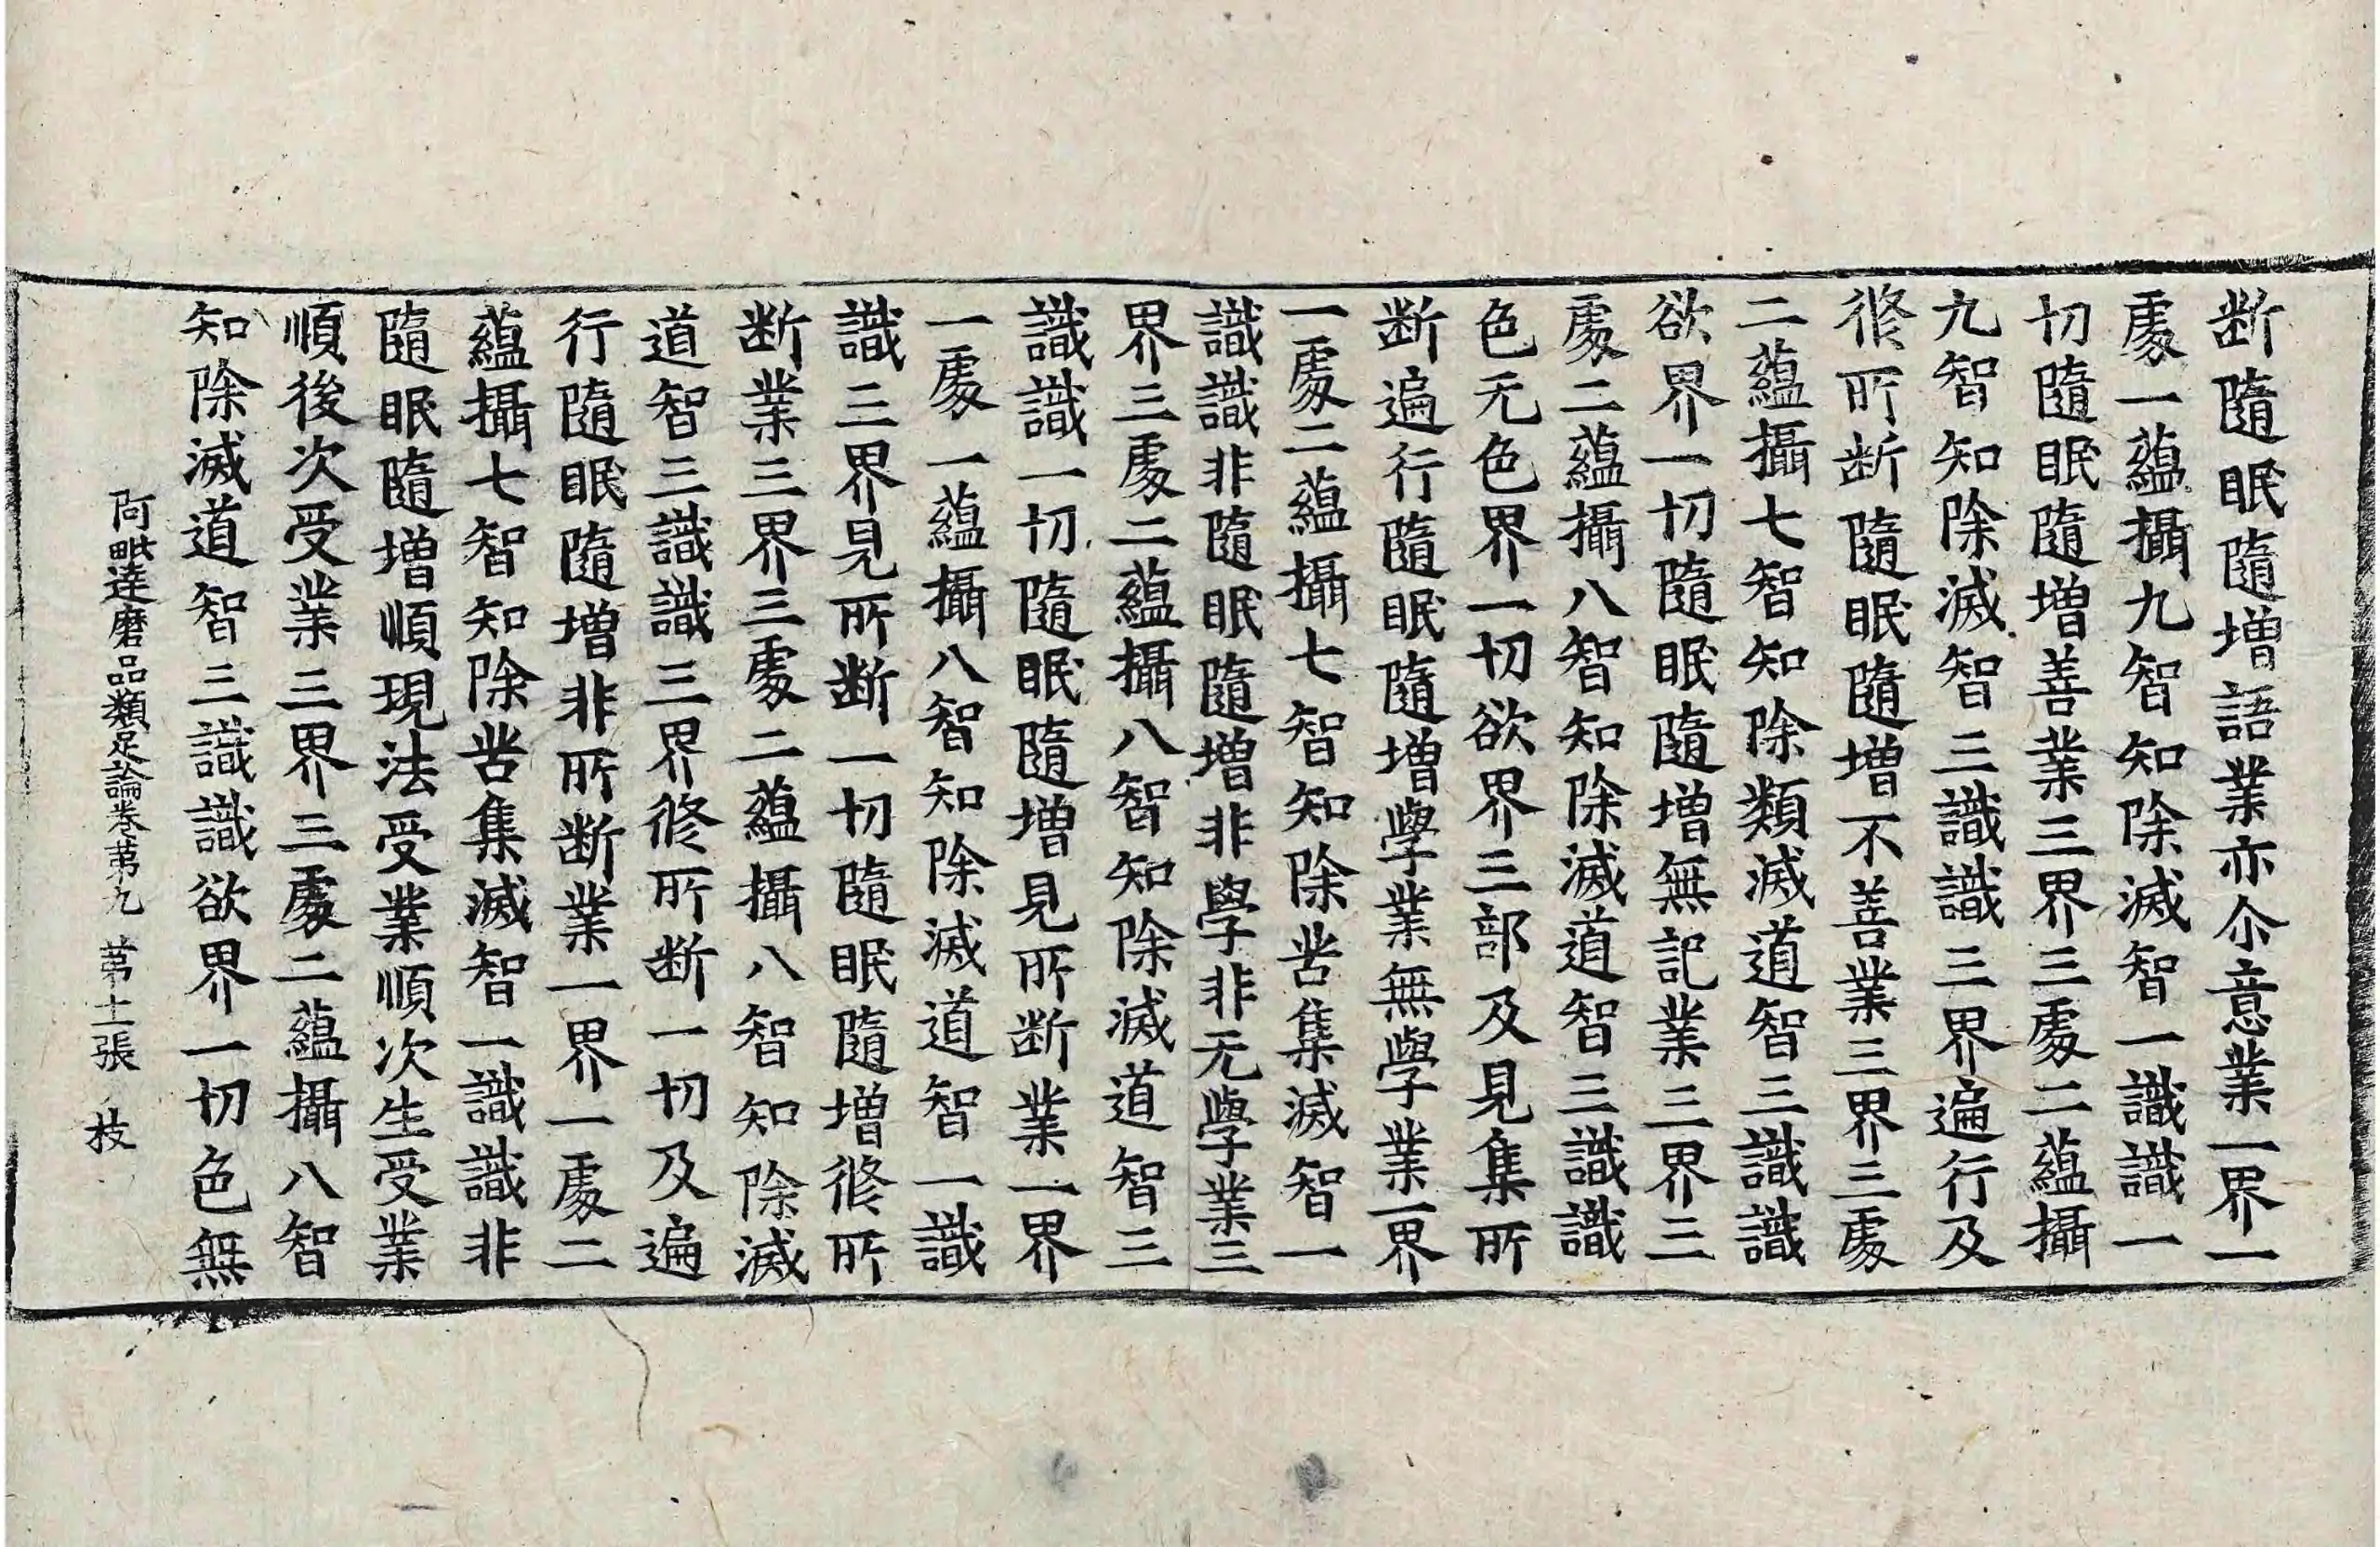 断隨眠隨増語業亦尒意業一界一
處一蘊攝九智知除滅智一識識一
切隨眠隨増善業三界三處二蘊攝
九智知除滅智三識識三界遍行及
修所断隨眠隨増不善業三界三處
二蘊攝七智知除類滅道智三識識
欲界一切隨眠隨増無記業三界三
處二蘊攝八智知除滅道智三識識
色无色界一切欲界三部及見集所
断遍行隨眠隨増學業無學業一界
一處二蘊攝七智知除苦集滅智一
識識非隨眠隨増非學非无學業三
界三處二蘊攝八智知除滅道智三
識識一切隨眠隨増見所断業一界
一處一蘊攝八智知除滅道智一識
識三界見所断一切隨眠隨増修所
断業三界三處二蘊攝八智知除滅
道智三識識三界修所断一切及遍
行隨眠隨増非所断業一界一處二
蘊攝七智知除苦集滅智一識識非
隨眠隨増順現法受業順次生受業
順後次受業三界三處二蘊攝八智
知除滅道智三識識欲界一切色無
阿毗達磨品類足論卷苐九 苐十一張 枝